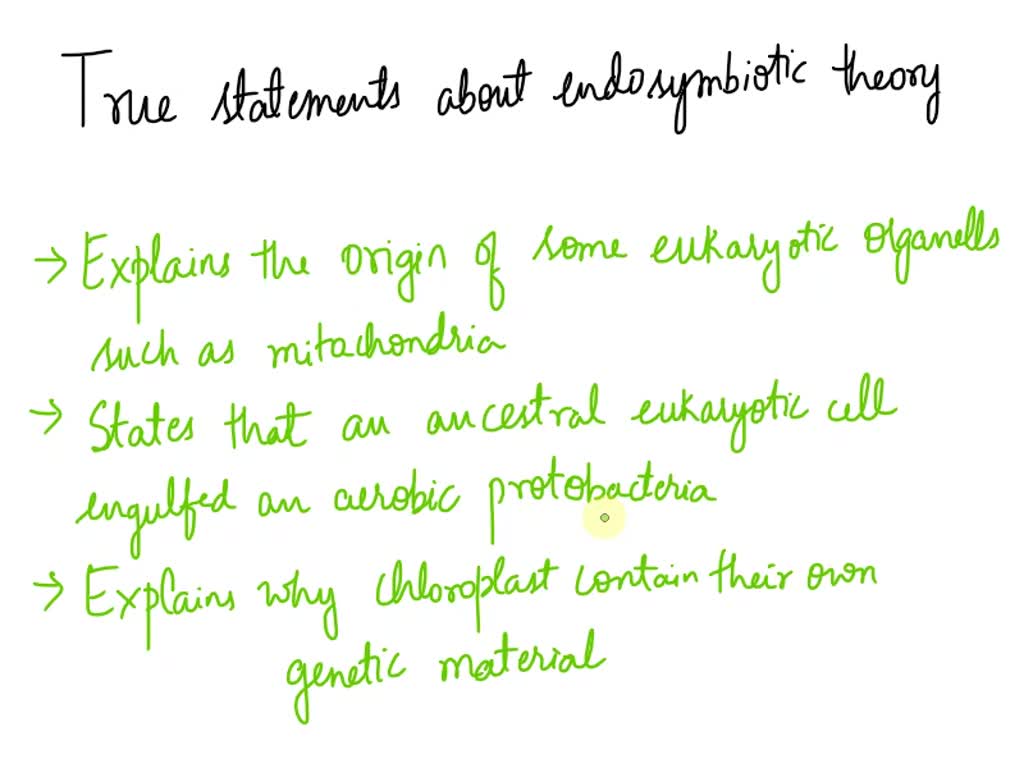 True statements about endosymbiotic theory
→ Explains the origin of some eukaryotic organells
such as mitachondria
→ States that an ancestral eukaryotic cell
engulfed an aerobic protobacteria
→ Explains why chloroplast contain their own
genetic material